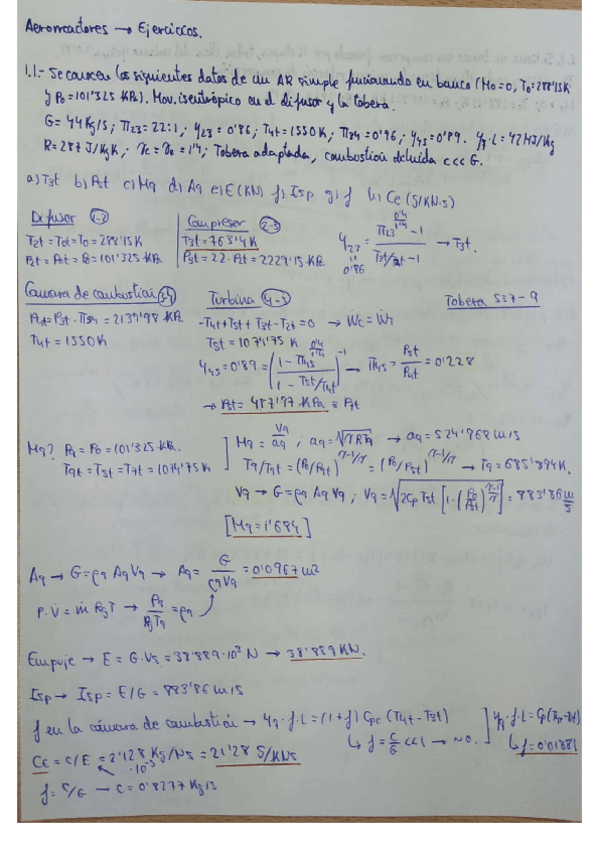 Aerorreactores → Ejercicios.
1.1.- Se conocen los siguientes datos de un AR simple funcionando en banco (M0=0, T0=288'15K
y P0=101'325 KPa). Mov. isentrópico en el difusor y la tobera.
G=44Kg/s; π23=22:1; η23=0'86; T4t=1550K; π34=0'96; η45=0'89. ηq·L=42MJ/Kg
R=287 J/KgK, γc=γe=1'4; Tobera adaptada, combustión diluida c<<G.
a) T3t b) P5t c) M9 d) A9 e) E(KN) f) Isp g) f h) CE (g/KN·s)
Difusor (1-2)
T2t=T0t=T0=288'15K
P2t=P0t=P0=101'325KPa
Compresor (2-3)
T3t=763'4K
P3t=22·P2t=2229'15KPa
η23 = (π23^(0'4/1'4) -1)/(T3t/T2t -1) → T3t.
0'86
Cámara de combustión (3-4)
P4t=P3t·π34=2139'98 KPa
T4t=1550K
Turbina (4-5)
-T4t+T5t+T3t-T2t=0 → Ẇc=ẆT
T5t=1074'75 K
η45=0'89=((1-π45^(0'4/1'4))/(1-T5t/T4t))^-1 → π45=P5t/P4t=0'228
→ P5t=487'97 KPa = P7t
Tobera 5=7-9
M9? P9=P0=101'325KPa.
T9t=T5t=T7t=1074'75K
M9=V9/a9; a9=√(γRT9) → a9=524'968m/s
T9/T9t=(P9/P9t)^(γ-1/γ)=(P0/P5t)^(γ-1/γ) → T9=685'894K.
V9 → G=ρ9 A9 V9; V9=√(2Cp T5t[1-(P0/P5t)^(γ-1/γ)])=883'86 m/s
[M9=1'684]
A9 → G=ρ9 A9 V9 → A9=G/(ρ9V9)=0'0967m2
P·V̇=ṁ RgT → P9/(RgT9)=ρ9
Empuje → E=G·V9=38'889·10^3 N → 38'889KN.
Isp → Isp=E/G=883'86m/s
f en la cámara de combustión → ηq·f·L=(1+f)Cpc(T4t-T3t)
↳ f=c/G<<1 → ~0.
ηq·f·L=Cp(T4t-T3t)
↳ f=0'01881
CE=c/E=2'128 Kg/Ns=21'28 g/KNs
·10^-5
f=c/G → c=0'8277Kg/s